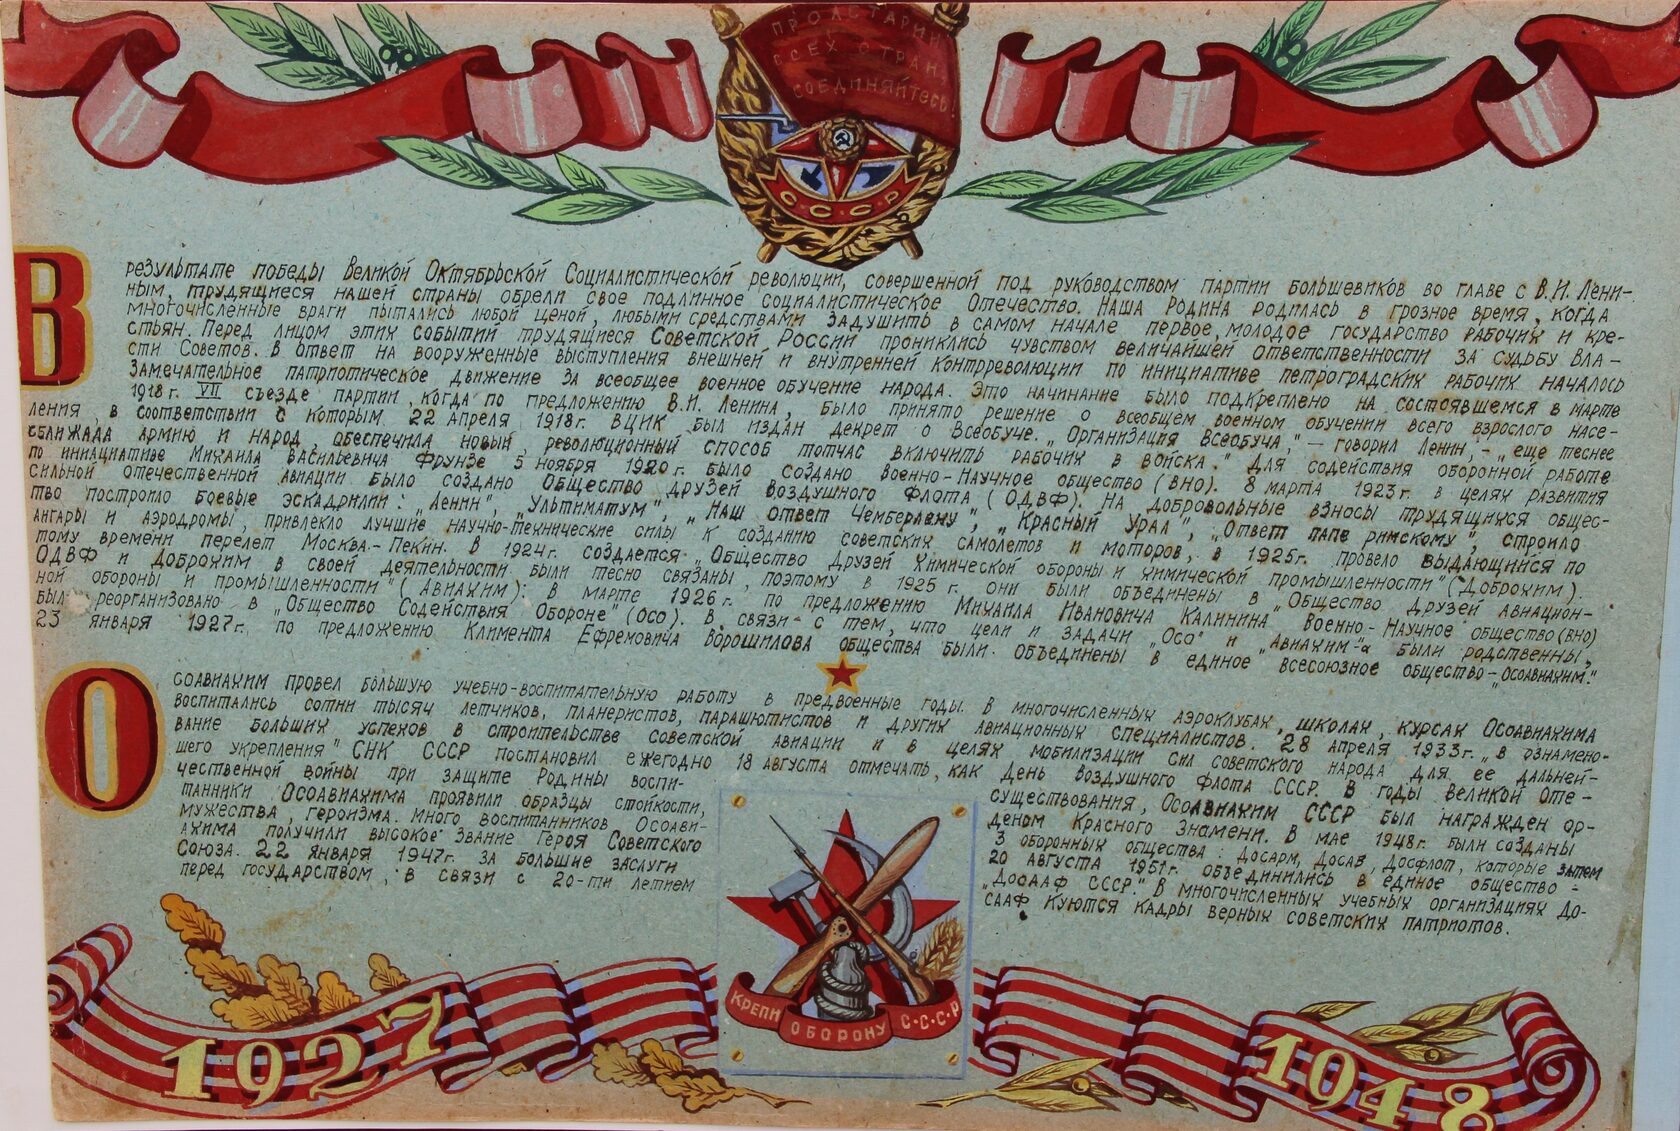 ПРОЛЕТАРИИ
ВСЕХ СТРАН,
СОЕДИНЯЙТЕСЬ!
С·С·С·Р
В результате победы Великой Октябрьской Социалистической революции, совершенной под руководством партии большевиков во главе с В.И. Лени-
ным, трудящиеся нашей страны обрели свое подлинное социалистическое Отечество. Наша Родина родилась в грозное время, когда
многочисленные враги пытались любой ценой, любыми средствами задушить в самом начале первое, молодое государство рабочих и кре-
стьян. Перед лицом этих событий трудящиеся Советской России прониклись чувством величайшей ответственности за судьбу Вла-
сти Советов. В ответ на вооруженные выступления внешней и внутренней контрреволюции по инициативе петроградских рабочих началось
замечательное патриотическое движение за всеобщее военное обучение народа. Это начинание было подкреплено на состоявшемся в марте
1918 г. VII съезде партии, когда по предложению В.И. Ленина, было принято решение о всеобщем военном обучении всего взрослого насе-
ления, в соответствии с которым 22 апреля 1918 г. ВЦИК был издан декрет о Всеобуче. „Организация Всеобуча," – говорил Ленин, – „еще теснее
сближада армию и народ, обеспечила новый, революционный способ тотчас включить рабочих в войска." Для содействия оборонной работе
по инициативе Михаила Васильевича Фрунзе 5 ноября 1920 г. было создано Военно-Научное общество (ВНО). 8 марта 1923 г. в целях развития
сильной отечественной авиации было создано Общество Друзей Воздушного Флота (ОДВФ). На добровольные взносы трудящихся общес-
тво построило боевые эскадрилии: „Ленин", „Ультиматум", „Наш ответ Чемберлену", „Красный Урал", „Ответ папе римскому", строило
ангары и аэродромы, привлекло лучшие научно-технические силы к созданию советских самолетов и моторов, в 1925 г. провело выдающийся по
тому времени перелет Москва-Пекин. В 1924 г. создается „Общество Друзей Химической обороны и химической промышленности" (Доброхим).
ОДВФ и Доброхим в своей деятельности были тесно связаны, поэтому в 1925 г. они были объединены в „Общество друзей авиацион-
ной обороны и промышленности" (Авиахим). В марте 1926 г. по предложению Михаила Ивановича Калинина Военно-Научное общество (ВНО)
было реорганизовано в „Общество Содействия Обороне" (ОСО). В связи с тем, что цели и задачи „Осо" и „Авиахим"-а были родственны,
23 января 1927 г., по предложению Климента Ефремовича Ворошилова общества были объединены в единое всесоюзное общество – „Осоавиахим."
Осоавиахим провел большую учебно-воспитательную работу в предвоенные годы. В многочисленных аэроклубах, школах, курсах Осоавиахима
воспитались сотни тысяч летчиков, планеристов, парашютистов и других авиационных специалистов. 28 апреля 1933 г. „в ознамено-
вание больших успехов в строительстве советской авиации и в целях мобилизации сил советского народа для ее дальней-
шего укрепления" СНК СССР постановил ежегодно 18 августа отмечать, как День Воздушного Флота СССР. В годы Великой Оте-
чественной войны при защите Родины воспи-
танники Осоавиахима проявили образцы стойкости,
мужества, героизма. Много воспитанников Осоави-
ахима получили высокое звание Героя Советского
Союза. 22 января 1947 г. за большие заслуги
перед государством, в связи с 20-ти летием
существования, Осоавиахим СССР был награжден ор-
деном Красного Знамени. В мае 1948 г. были созданы
3 оборонных общества: ДОСАРМ, ДОСАВ, ДОСФЛОТ, которые затем
20 августа 1951 г. объединились в единое общество –
„ДОСААФ СССР." В многочисленных учебных организациях ДО-
СААФ куются кадры верных советских патриотов.
КРЕПИ ОБОРОНУ С·С·С·Р
1927
1948